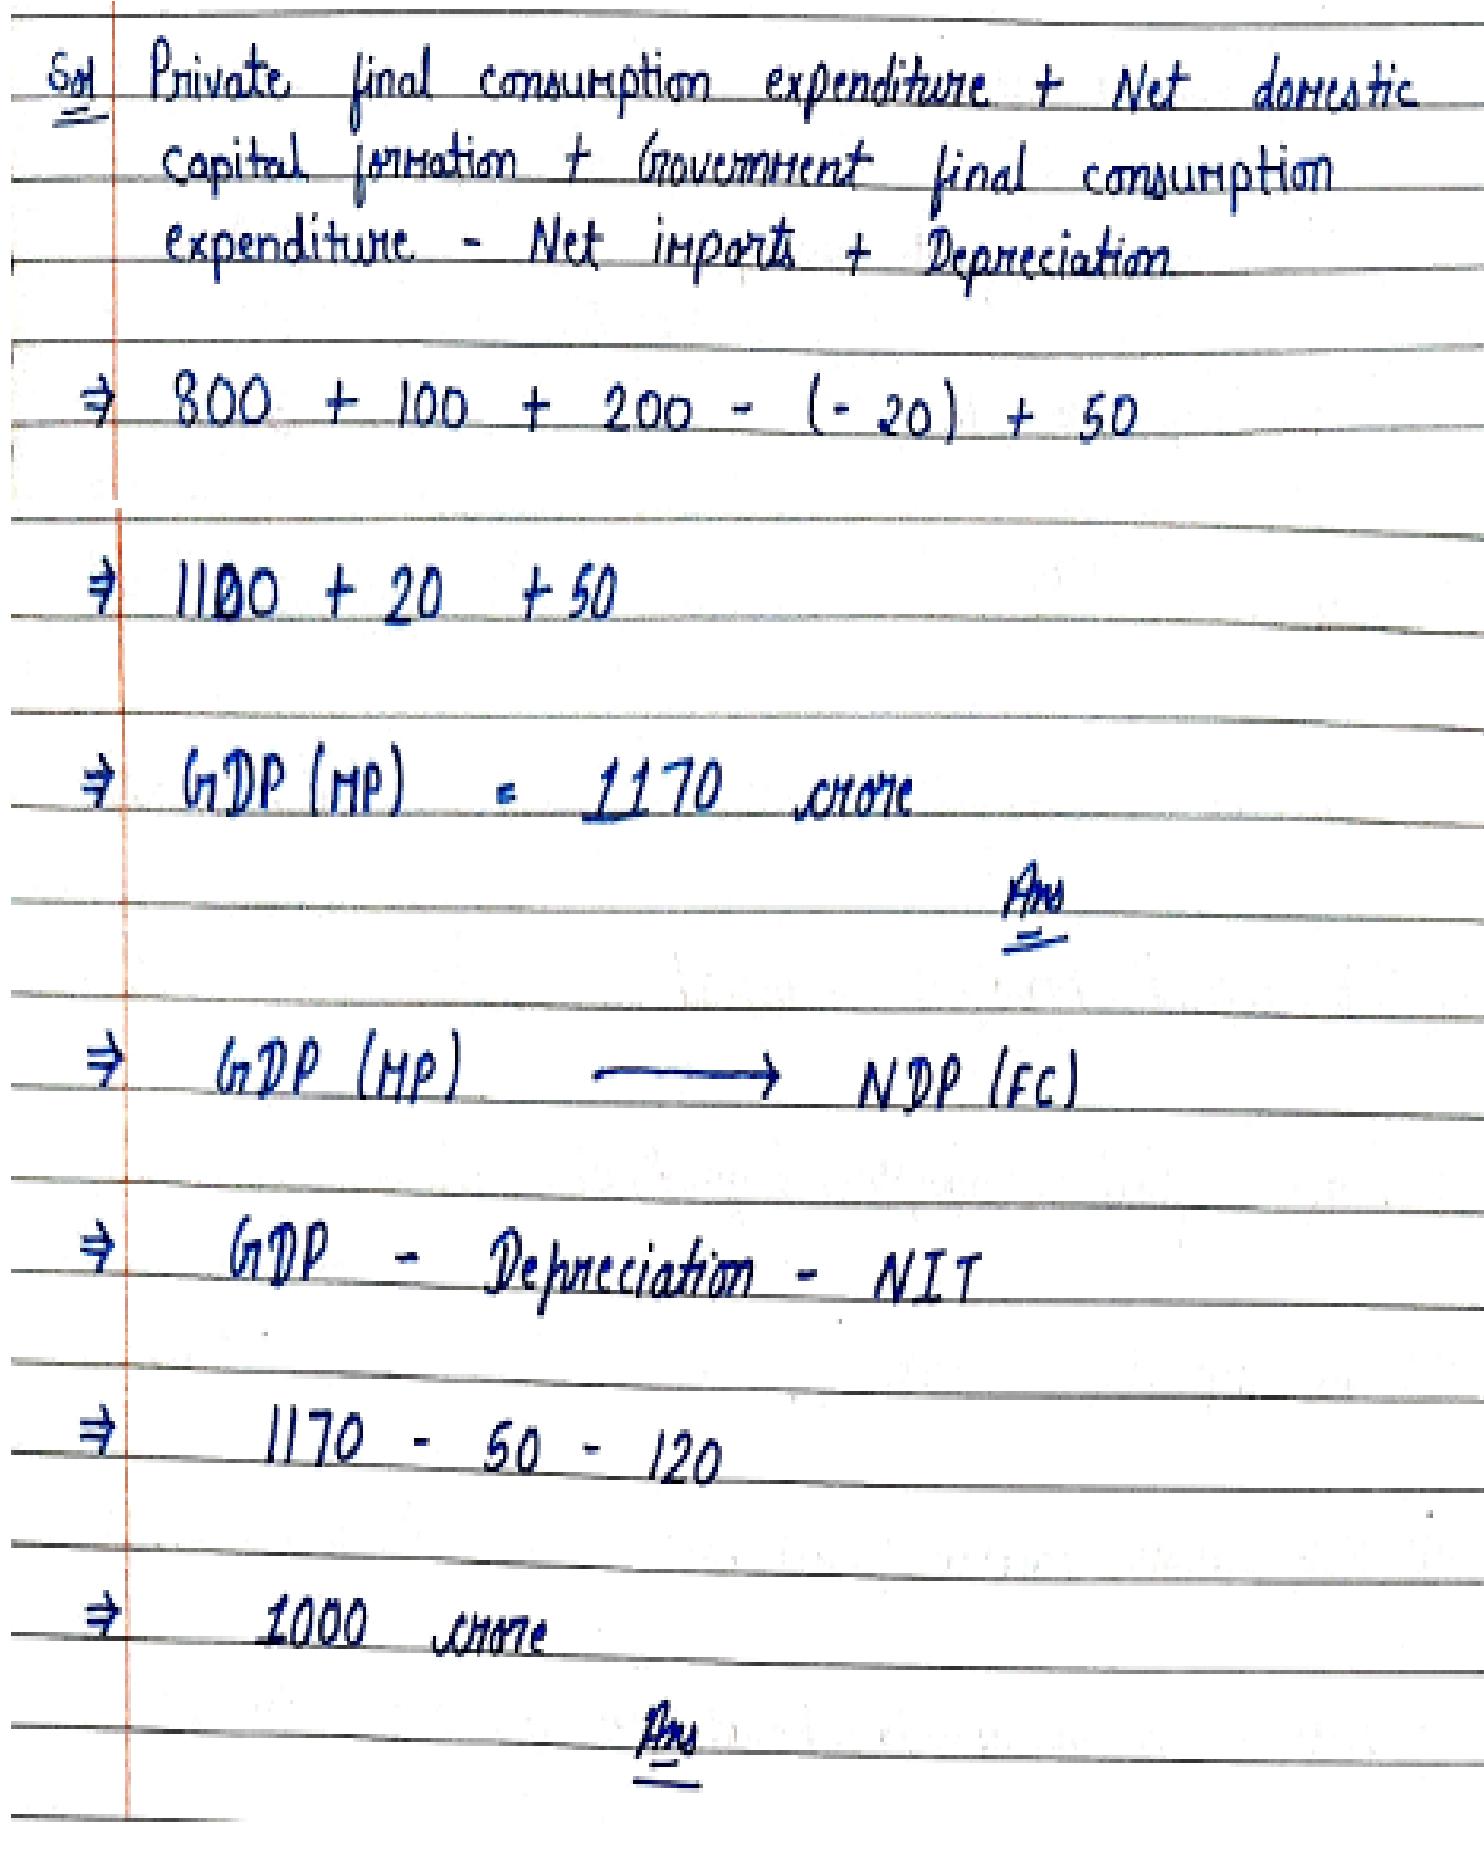 Sol Private final consumption expenditure + Net domestic
capital formation + Government final consumption
expenditure - Net imports + Depreciation
⇒ 800 + 100 + 200 - (-20) + 50
⇒ 1100 + 20 + 50
⇒ GDP (MP) = 1170 crore
Ans
⇒ GDP (MP) ⟶ NDP (FC)
⇒ GDP - Depreciation - NIT
⇒ 1170 - 50 - 120
⇒ 1000 crore
Ans